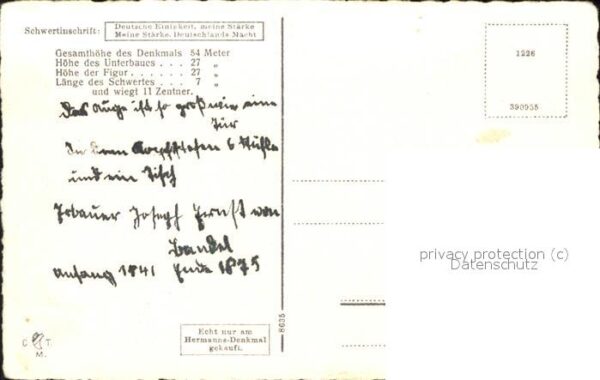 Schwertinschrift:
Deutsche Einigkeit, meine Stärke
Meine Stärke, Deutschlands Macht
Gesamthöhe des Denkmals 54 Meter
Höhe des Unterbaues . . . 27 „
Höhe der Figur . . . . . . 27 „
Länge des Schwertes . . . 7 „
und wiegt 11 Zentner.
das Auge ist so groß wie eine
Tür
In dem Kopf stehen 6 Stühle
und ein Tisch
Erbauer Joseph Ernst von
Bandel
Anfang 1841 Ende 1875
1226
390935
8635
C T.
M.
Echt nur am
Hermanns-Denkmal
gekauft.
privacy protection (c)
Datenschutz